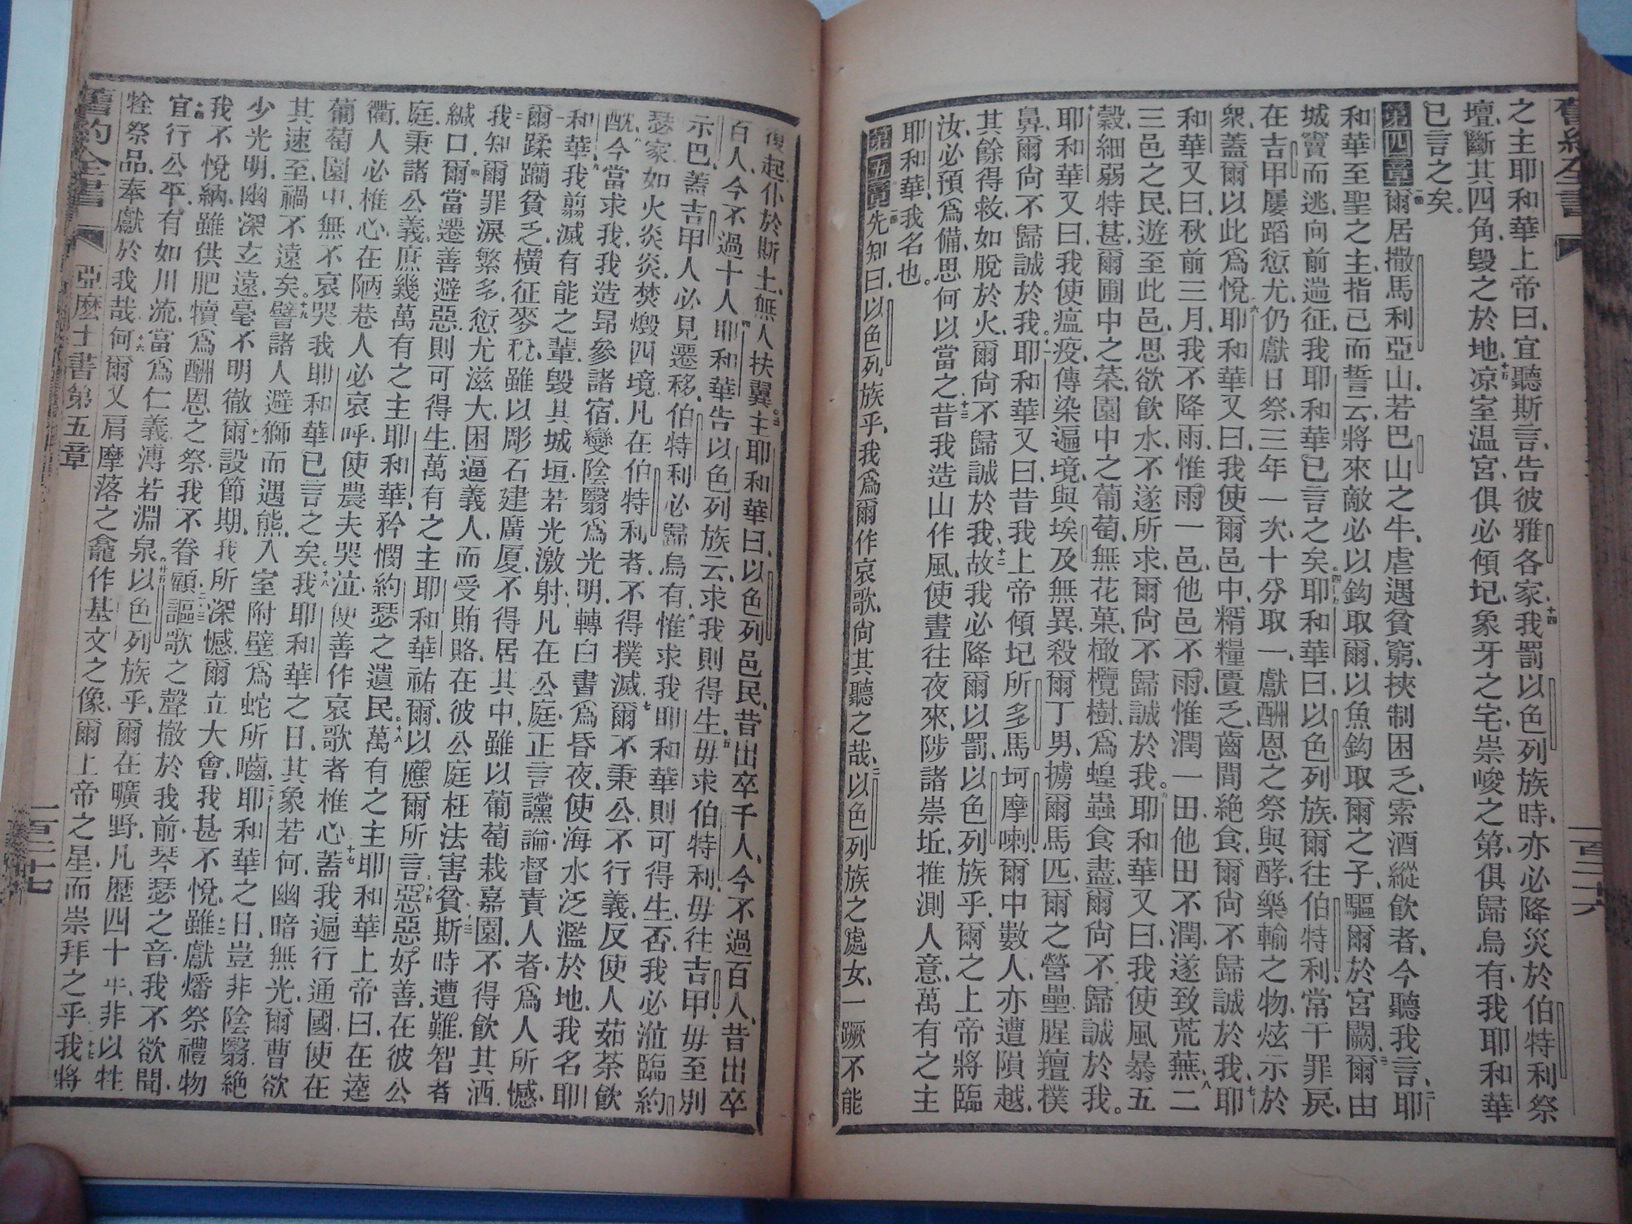 舊約全書
一百二十六
之主耶和華上帝曰、宜聽斯言、告彼雅各家、十四我罰以色列族時、亦必降災於伯特利祭
壇、斷其四角、毀之於地、十五凉室溫宮、俱必傾圮、象牙之宅、崇峻之第、俱歸烏有、我耶和華
已言之矣。
第四章一爾居撒馬利亞山、若巴山之牛、虐遇貧窮、挾制困乏、索酒縱飲者、今聽我言、二耶
和華至聖之主、指己而誓云、將來敵必以鈎取爾、以魚鈎取爾之子、驅爾於宮闕、三爾由
城竇而逃、向前遄征、我耶和華已言之矣、四耶和華曰、以色列族、爾往伯特利、常干罪戾、
在吉甲屢蹈愆尤、仍獻日祭、三年一次、十分取一、五獻酬恩之祭、與酵樂輸之物、炫示於
衆、蓋爾以此爲悅、六耶和華又曰、我使爾邑中、精糧匱乏、齒間絶食、爾尙不歸誠於我、七耶
和華又曰、秋前三月、我不降雨、惟雨一邑、他邑不雨、惟潤一田、他田不潤、遂致荒蕪、八二
三邑之民、遊至此邑、思欲飮水、不遂所求、爾尙不歸誠於我。九耶和華又曰、我使風暴五
穀細弱特甚、爾圃中之菜、園中之葡萄、無花菓、橄欖樹、爲蝗蟲食盡、爾尙不歸誠於我。
十耶和華又曰、我使瘟疫、傳染遍境、與埃及無異、殺爾丁男、擄爾馬匹、爾之營壘、腥羶撲
鼻、爾尙不歸誠於我、十一耶和華又曰、昔我上帝傾圮所多馬、㘪摩喇、爾中數人、亦遭隕越、
其餘得救、如脫於火、爾尙不歸誠於我、十二故我必降爾以罰、以色列族乎、爾之上帝將臨
汝、必預爲備、思何以當之、十三昔我造山作風、使晝往夜來、陟諸崇坵、推測人意、萬有之主
耶和華、我名也。
第五章一先知曰、以色列族乎、我爲爾作哀歌、尙其聽之哉、二以色列族之處女、一蹶不能
復起、仆於斯土、無人扶翼、三主耶和華曰、以色列邑民、昔出卒千人、今不過百人、昔出卒
百人、今不過十人、四耶和華告以色列族云、求我則得生、五毋求伯特利、毋往吉甲、毋至別
示巴、蓋吉甲人必見遷移、伯特利必歸烏有、六惟求我耶和華、則可得生、否、我必涖臨約
瑟家、如火炎炎、焚燬四境、凡在伯特利者、不得撲滅、七爾不秉公、不行義、反使人茹荼飮
酖、八今當求我、我造昴參諸宿、變陰翳爲光明、轉白晝爲昏夜、使海水泛濫於地、我名耶
和華、九我翦滅有能之輩、毀其城垣、若光激射、十凡在公庭、正言讜論、督責人者、爲人所憾、
十一爾蹂躪貧乏、橫征麥稅、雖以彫石建廣廈、不得居其中、雖以葡萄栽嘉園、不得飲其酒、
十二我知爾罪淚繁多、愆尤滋大、困逼義人、而受賄賂、在彼公庭、枉法害貧、十三斯時遭難、智者
緘口、十四爾當遷善避惡、則可得生、萬有之主耶和華祐爾、以應爾所言、十五惡惡好善、在彼公
庭、秉諸公義、庶幾萬有之主耶和華、矜憫約瑟之遺民、十六萬有之主耶和華上帝曰、在逵
衢、人必椎心、在陋巷、人必哀呼、使農夫哭泣、使善作哀歌者椎心、十七蓋我遍行通國、使在
葡萄園中、無不哀哭、我耶和華已言之矣、十八我耶和華之日、其象若何、幽暗無光、爾曹欲
其速至、禍不遠矣、十九譬諸人避獅而遇熊、入室附壁、爲蛇所嚙、二十耶和華之日、豈非陰翳絶
少光明、幽深玄遠、毫不明徹、二十一爾設節期、我所深憾、爾立大會、我甚不悅、二十二雖獻燔祭禮物、
我不悅納、雖供肥犢、爲酬恩之祭、我不眷顧、二十三謳歌之聲、撤於我前、琴瑟之音、我不欲聞、
二十四宜行公平、有如川流、當爲仁義、溥若淵泉、二十五以色列族乎、爾在曠野、凡歷四十年、非以牲
牷祭品、奉獻於我哉、二十六何爾又肩摩落之龕、作基文之像、爾上帝之星、而崇拜之乎、二十七我將
舊約全書
亞麼士書第五章
一百二十七